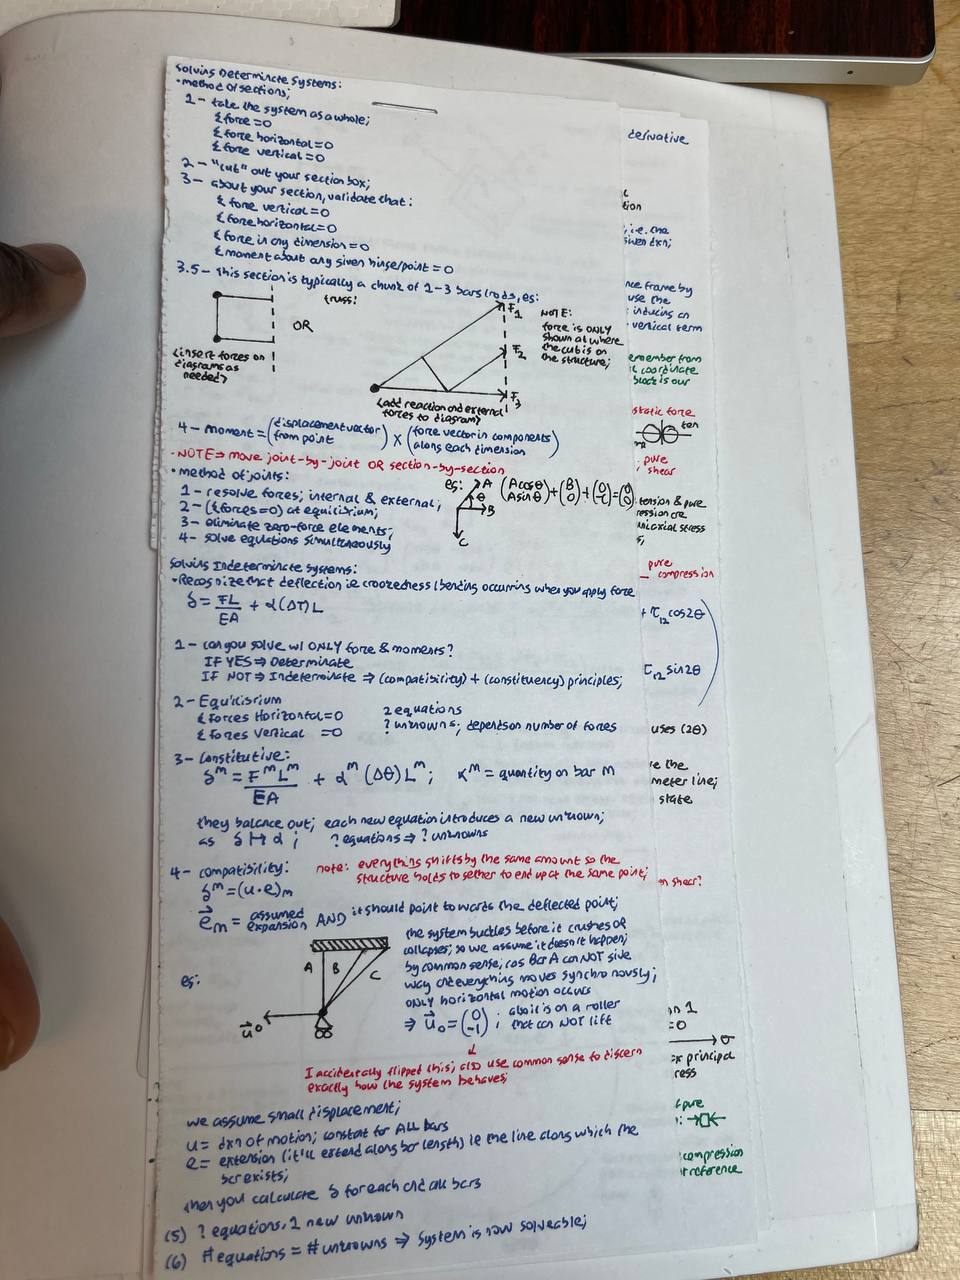 Solving Determinate Systems:
• method of sections;
1 - take the system as a whole;
Σ force = 0
Σ force horizontal = 0
Σ force vertical = 0
2 - "cut" out your section box;
3 - about your section, validate that:
Σ force vertical = 0
Σ force horizontal = 0
Σ force in any dimension = 0
Σ moment about any given hinge/point = 0
3.5 - This section is typically a chunk of 2-3 bars/rods, eg:
truss:
OR
<insert forces on
diagrams as
needed>
F1
F2
F3
NOTE:
force is ONLY
shown at where
the cut is on
the structure;
<add reaction and external
forces to diagram>
4 - moment = (displacement vector from point) × (force vector in components along each dimension)
- NOTE ⇒ move joint-by-joint OR section-by-section
• method of joints:
1 - resolve forces; internal & external;
2 - (Σ forces = 0) at equilibrium;
3 - eliminate zero-force elements;
4 - solve equations simultaneously
eg: A θ B C (Acosθ Asinθ) + (B 0) + (0 -C) = (0 0)
Solving Indeterminate Systems:
• Recognize that deflection ie crookedness/bending occurring when you apply force
δ = FL/EA + α(ΔT)L
1 - can you solve w/ ONLY force & moments?
IF YES ⇒ Determinate
IF NOT ⇒ Indeterminate ⇒ (compatibility) + (constituency) principles;
2 - Equilibrium
Σ forces Horizontal = 0
Σ forces Vertical = 0
2 equations
? unknowns; depends on number of forces
3 - Constitutive:
δᵐ = FᵐLᵐ/EA + αᵐ(Δθ)Lᵐ; xᵐ = quantity on bar m
they balance out; each new equation introduces a new unknown;
as δ ↦ α; ? equations ⇒ ? unknowns
4 - compatibility:
note: everything shifts by the same amount so the
structure holds together to end up at the same point;
δᵐ = (u·e)m
e⃗m = assumed expansion AND it should point towards the deflected point;
eg:
A B C
u⃗0
the system buckles before it crushes or
collapses; so we assume it doesn't happen;
by common sense; cos Bar A can NOT give
way and everything moves synchronously;
ONLY horizontal motion occurs
⇒ u⃗0 = (0 -1); also it is on a roller
that can NOT lift
I accidentally flipped this; also use common sense to discern
exactly how the system behaves;
we assume small displacement;
u = dxn of motion; constant for ALL bars
e = extension (it'll extend along bar length) ie the line along which the
bar exists;
then you calculate δ for each and all bars
(5) ? equations, 2 new unknown
(6) # equations = # unknowns ⇒ system is now solveable;
derivative
, i.e. the
given dxn;
nce frame by
use the
inducing an
vertical term
emember from
coordinate
block is our
static force
ten
pure
shear
tension & pure
ression are
uniaxial stress
pure
compression
+ τ12 cos2θ
τ12 sin2θ
uses (2θ)
re the
meter line;
state
on shear?
on 1
= 0
σ
principal
ress
pure
compression
reference